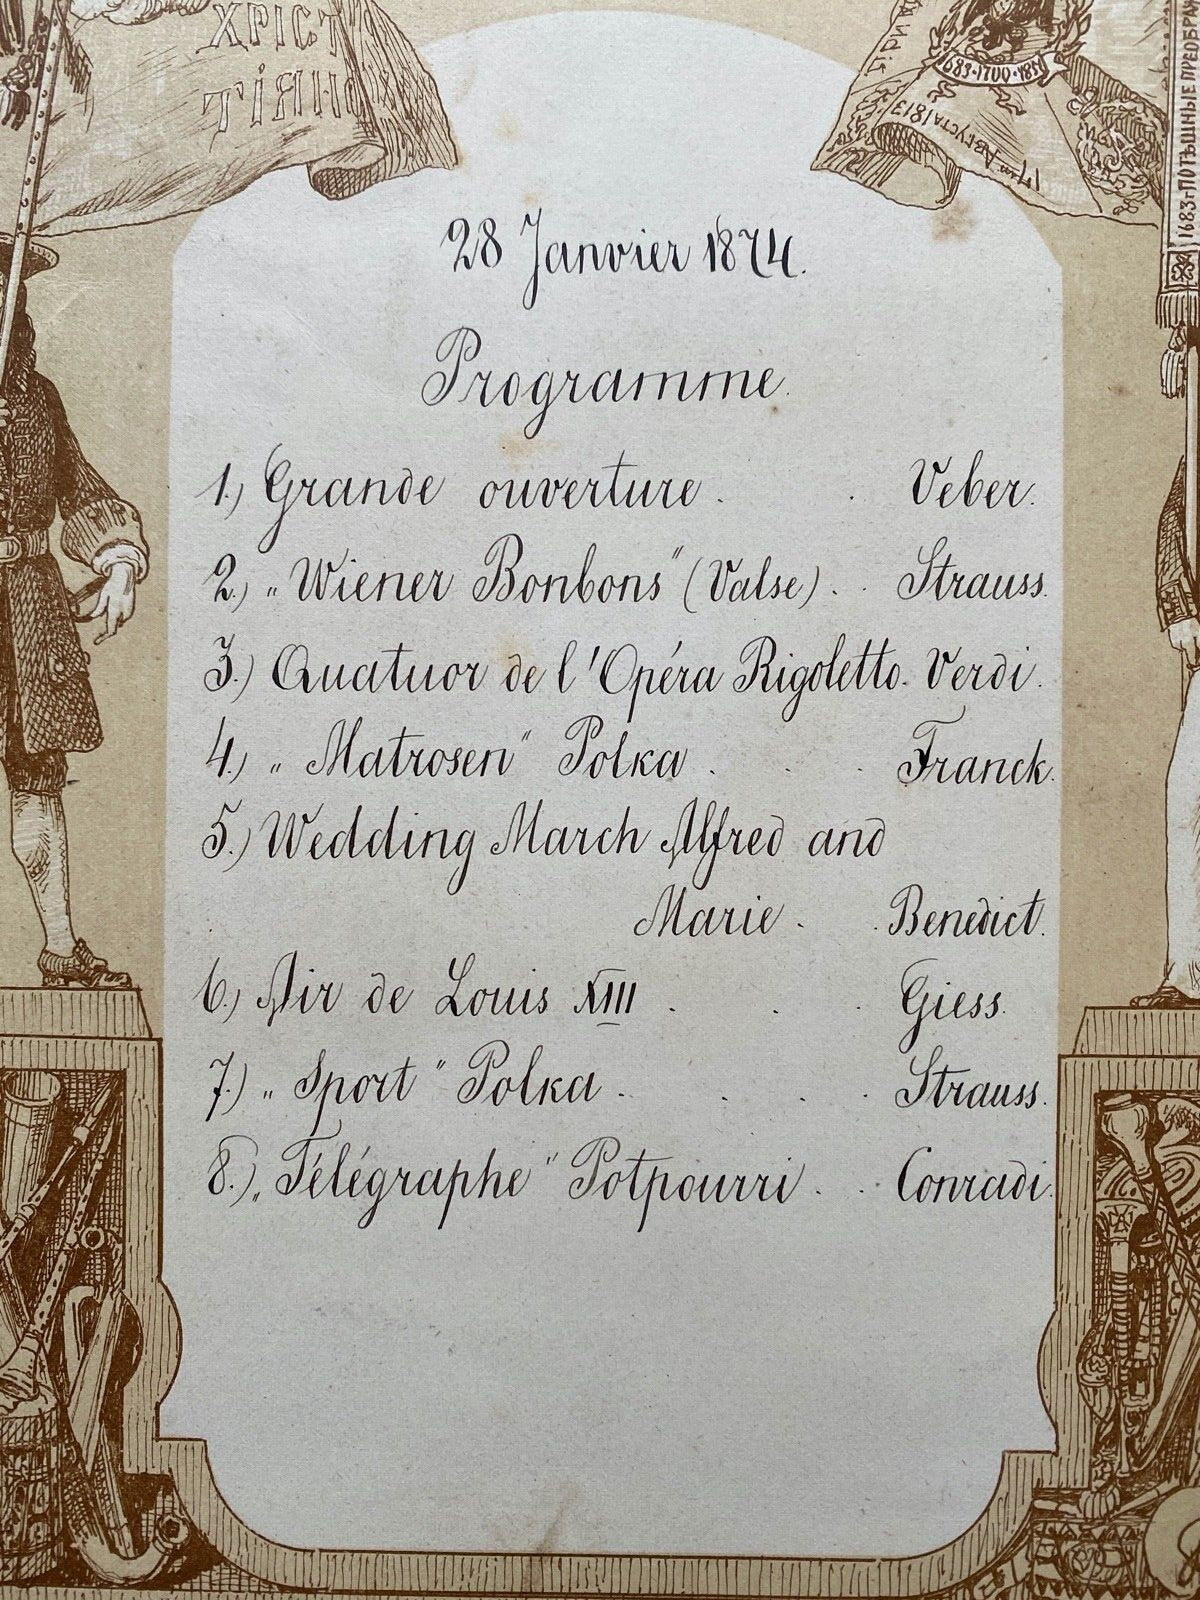 ХРІСТ
ТІЯНІ
683·1700·185
17го АВГУСТА 1813
1683г ПОТѢШНЫЕ ПРЕОБРАЖ
28 Janvier 1874.
Programme.
1.) Grande ouverture . . Veber.
2.) „Wiener Bonbons" (Valse) . . Strauss.
3.) Quatuor de l'Opéra Rigoletto. Verdi.
4.) „Matrosen" Polka . . . Franck.
5.) Wedding March Alfred and
Marie . . Benedict.
6.) Air de Louis XIII . . . Giess.
7.) „Sport" Polka . . . . Strauss.
8.) „Télégraphe" Potpourri . . Conradi.